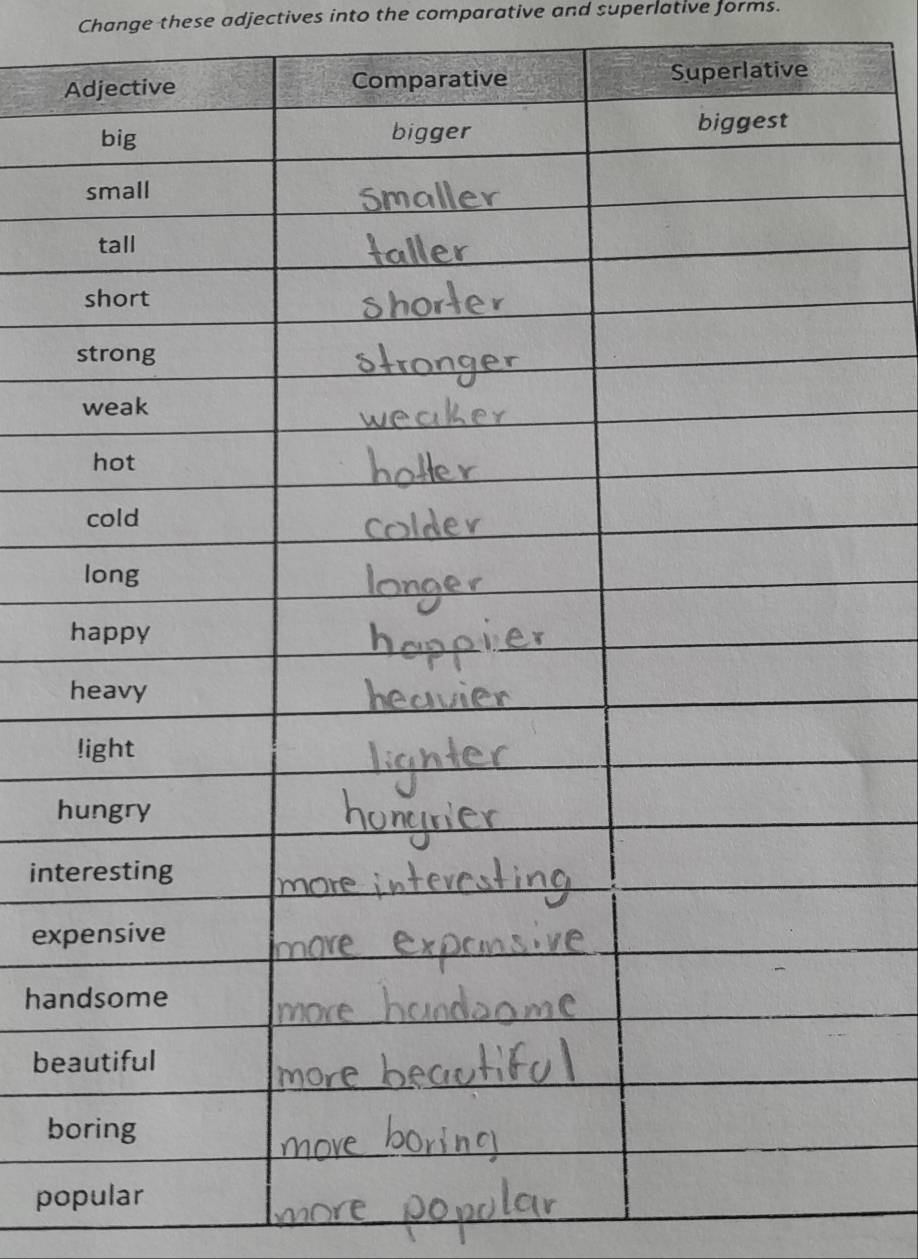 Change these adjectives into the comparative and superlative forms.
Adjective Comparative Superlative
big bigger biggest
small smaller
tall taller
short shorter
strong stronger
weak weaker
hot hotter
cold colder
long longer
happy happier
heavy heavier
light lighter
hungry hongrier
interesting more interesting
expensive more expansive
handsome more handsome
beautiful more beautiful
boring more boring
popular more popular